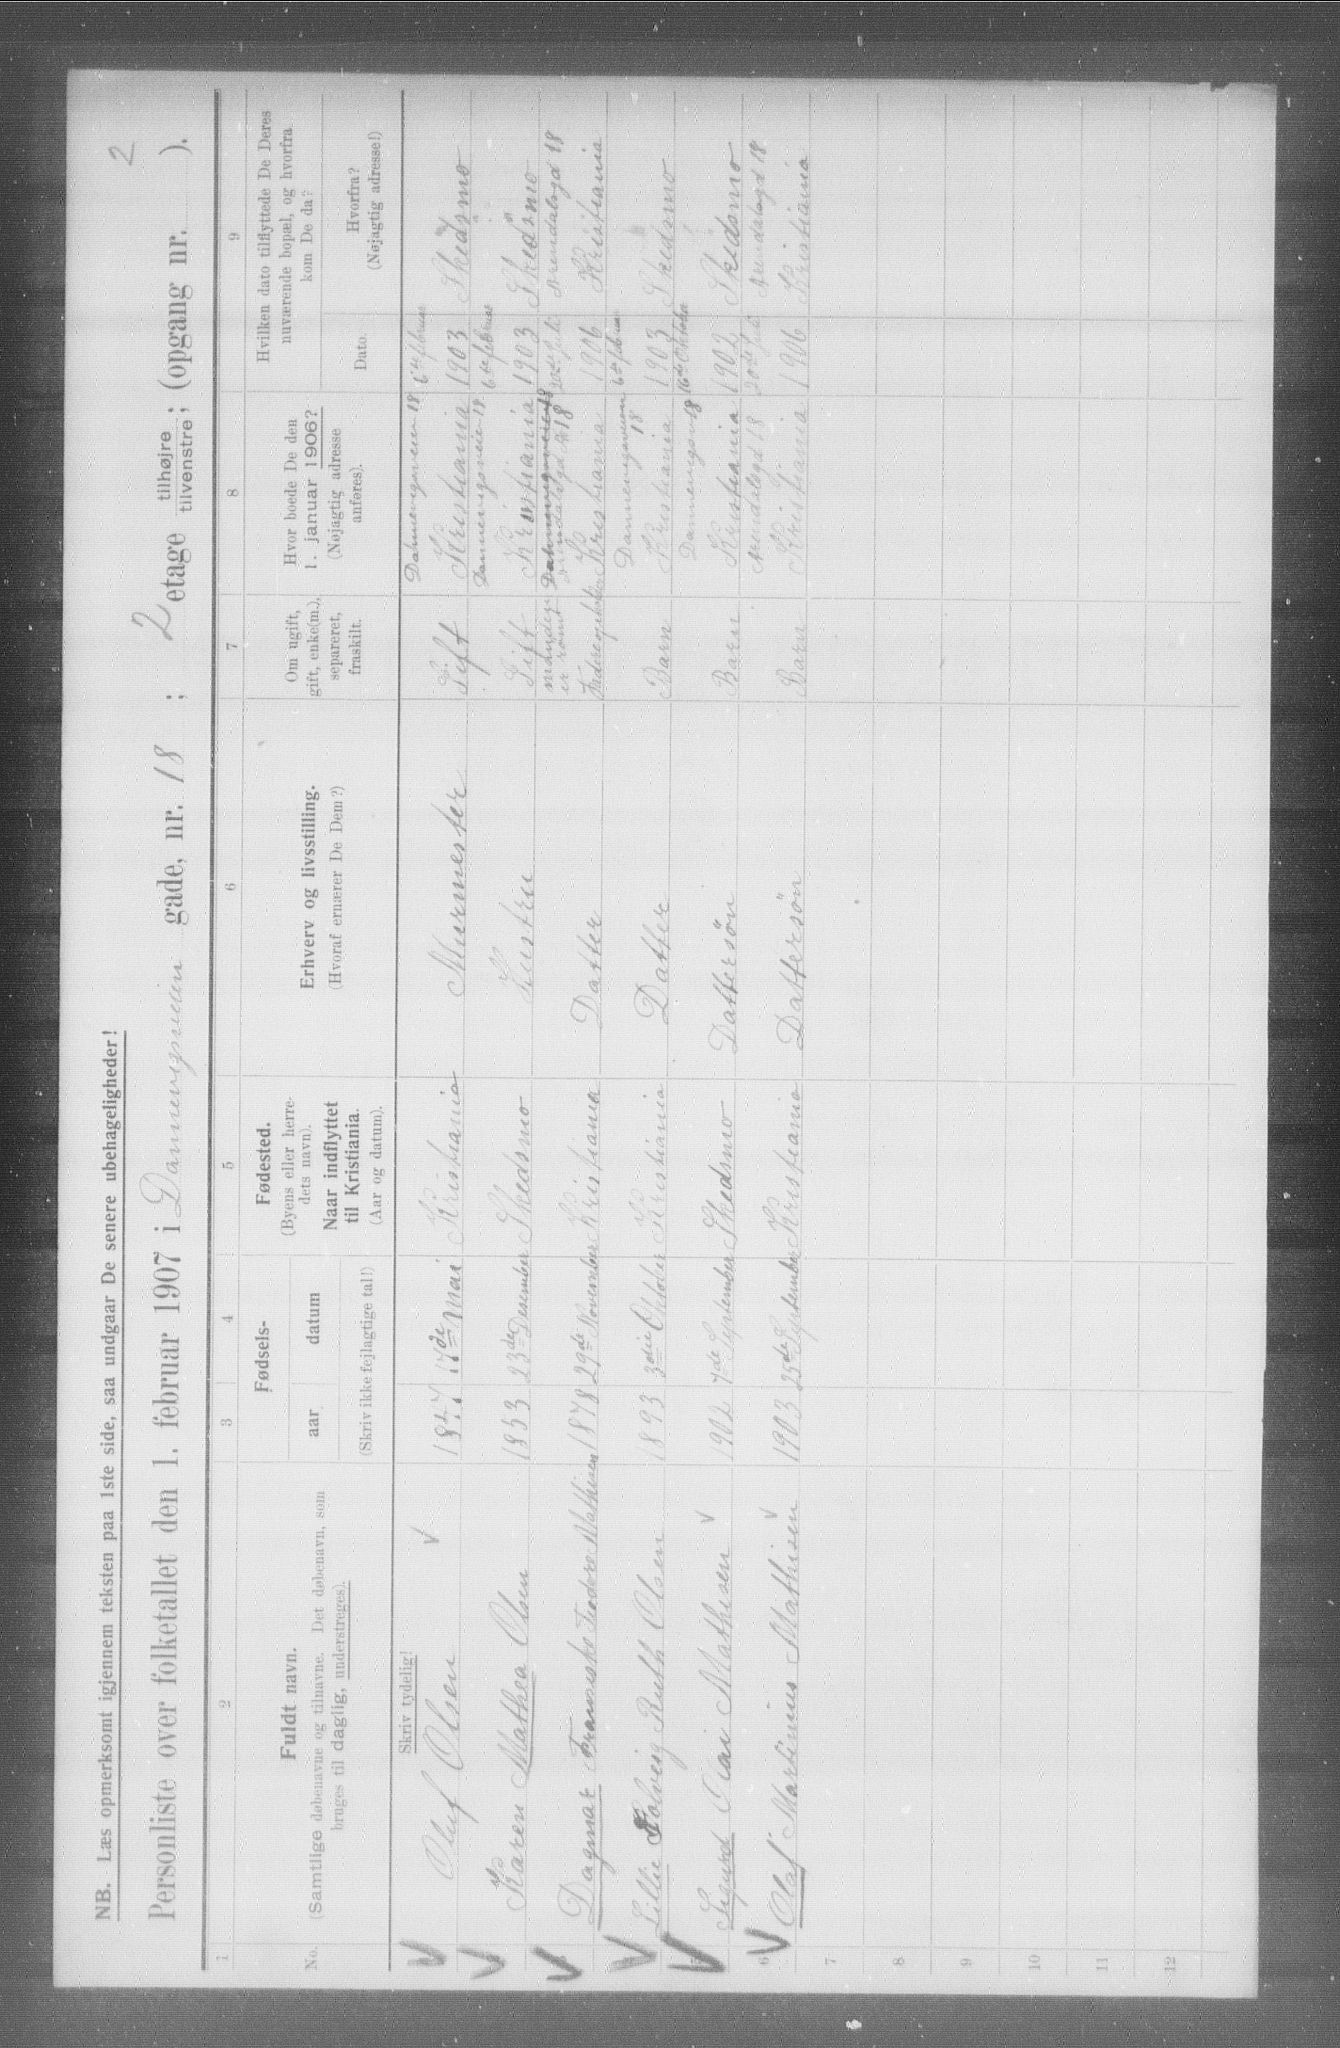 2
NB. Læs opmerksomt igjennem teksten paa 1ste side, saa undgaar De senere ubehageligheder!
Personliste over folketallet den 1. februar 1907 i Dannevigsveien gade, nr. 18 ; 2 etage tilhøjre tilvenstre; (opgang nr. ).
1 2 3 4 5 6 7 8 9
No.
Fuldt navn.
(Samtlige døbenavne og tilnavne. Det døbenavn, som
bruges til daglig, understreges).
Fødsels-
aar datum
(Skriv ikke fejlagtige tal!)
Fødested.
(Byens eller herre-
dets navn).
Naar indflyttet
til Kristiania.
(Aar og datum).
Erhverv og livsstilling.
(Hvoraf ernærer De Dem?)
Om ugift,
gift, enke(m.),
separeret,
fraskilt.
Hvor boede De den
1. januar 1906?
(Nøjagtig adresse
anføres).
Hvilken dato tilflyttede De Deres
nuværende bopæl, og hvorfra
kom De da?
Dato.
Hvorfra?
(Nøjagtig adresse!)
Skriv tydelig!
Dannevigsveien 18 6te februar
Oluf Olsen 17de Mai Kristiania Murmester Gift Kristiania 1903 Skedsmo
Dannevigsveien 18 6te februar
Karen Mathea Olsen 1853 23de Desember Skedsmo Hustru Gift Kristiania 1903 Skedsmo
manden er rømt Arendalsgd 18 20de juli Arendalsgd 18
Dagmar Fransiska Teodora Mathisen 1878 29de November Kristiania Datter Kristiania 1906 Kristiania
Dannevigsveien 18 6te februar
Lillie Solveig Ruth Olsen 1893 3die Oktober Kristiania Datter Barn Kristiania 1903 Skedsmo
Dannevigsv 18 16de Oktober
Sigurd Isai Mathisen 1902 7de September Skedsmo Dattersön Barn Kristiania 1902 Skedsmo
Arendalsgd 18 20de juli Arendalsgd 18
Olaf Martinius Mathisen 1903 25de September Kristiania Dattersön Barn Kristiania 1906 Kristiania
5
6
7
8
9
10
11
12